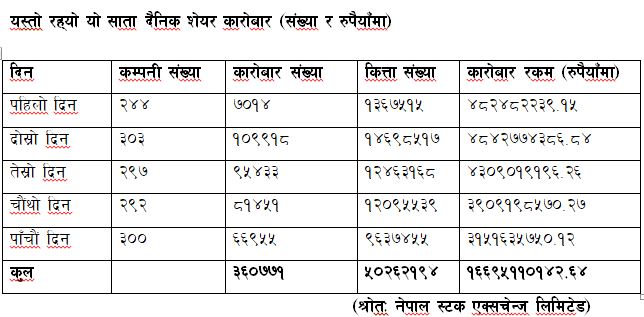 यस्तो रह्यो यो साता दैनिक शेयर कारोबार (संख्या र रुपैयाँमा)
दिन कम्पनी संख्या कारोबार संख्या कित्ता संख्या कारोबार रकम (रुपैयाँमा)
पहिलो दिन २४४ ७०१४ १३६७५१५ ४८२४८२२३९.१५
दोस्रो दिन ३०३ १०९९१८ १४६९८५१७ ४८४२७७४३८६.८४
तेस्रो दिन २९७ ९५४३३ १२४६३१६८ ४३०९०१९१९६.२६
चौंथो दिन २९२ ८१४५१ १२०९५५३९ ३९०९१९८५७०.२७
पाँचौ दिन ३०० ६६९५५ ९६३७४५५ ३१५१६३५७५०.१२
कुल ३६०७७१ ५०२६२१९४ १६६९५११०१४२.६४
(श्रोतः नेपाल स्टक एक्सचेन्ज लिमिटेड)